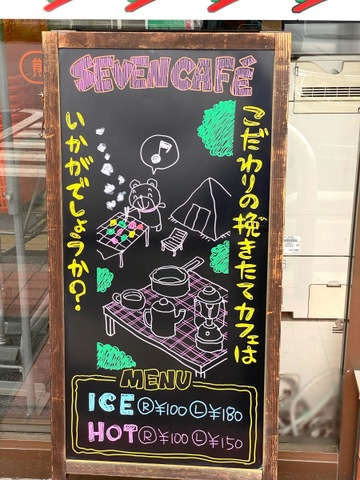 SEVEN CAFÉ
こだわりの挽きたてカフェは
いかがでしょうか?
MENU
ICE Ⓡ¥100 Ⓛ¥180
HOT Ⓡ¥100 Ⓛ¥150